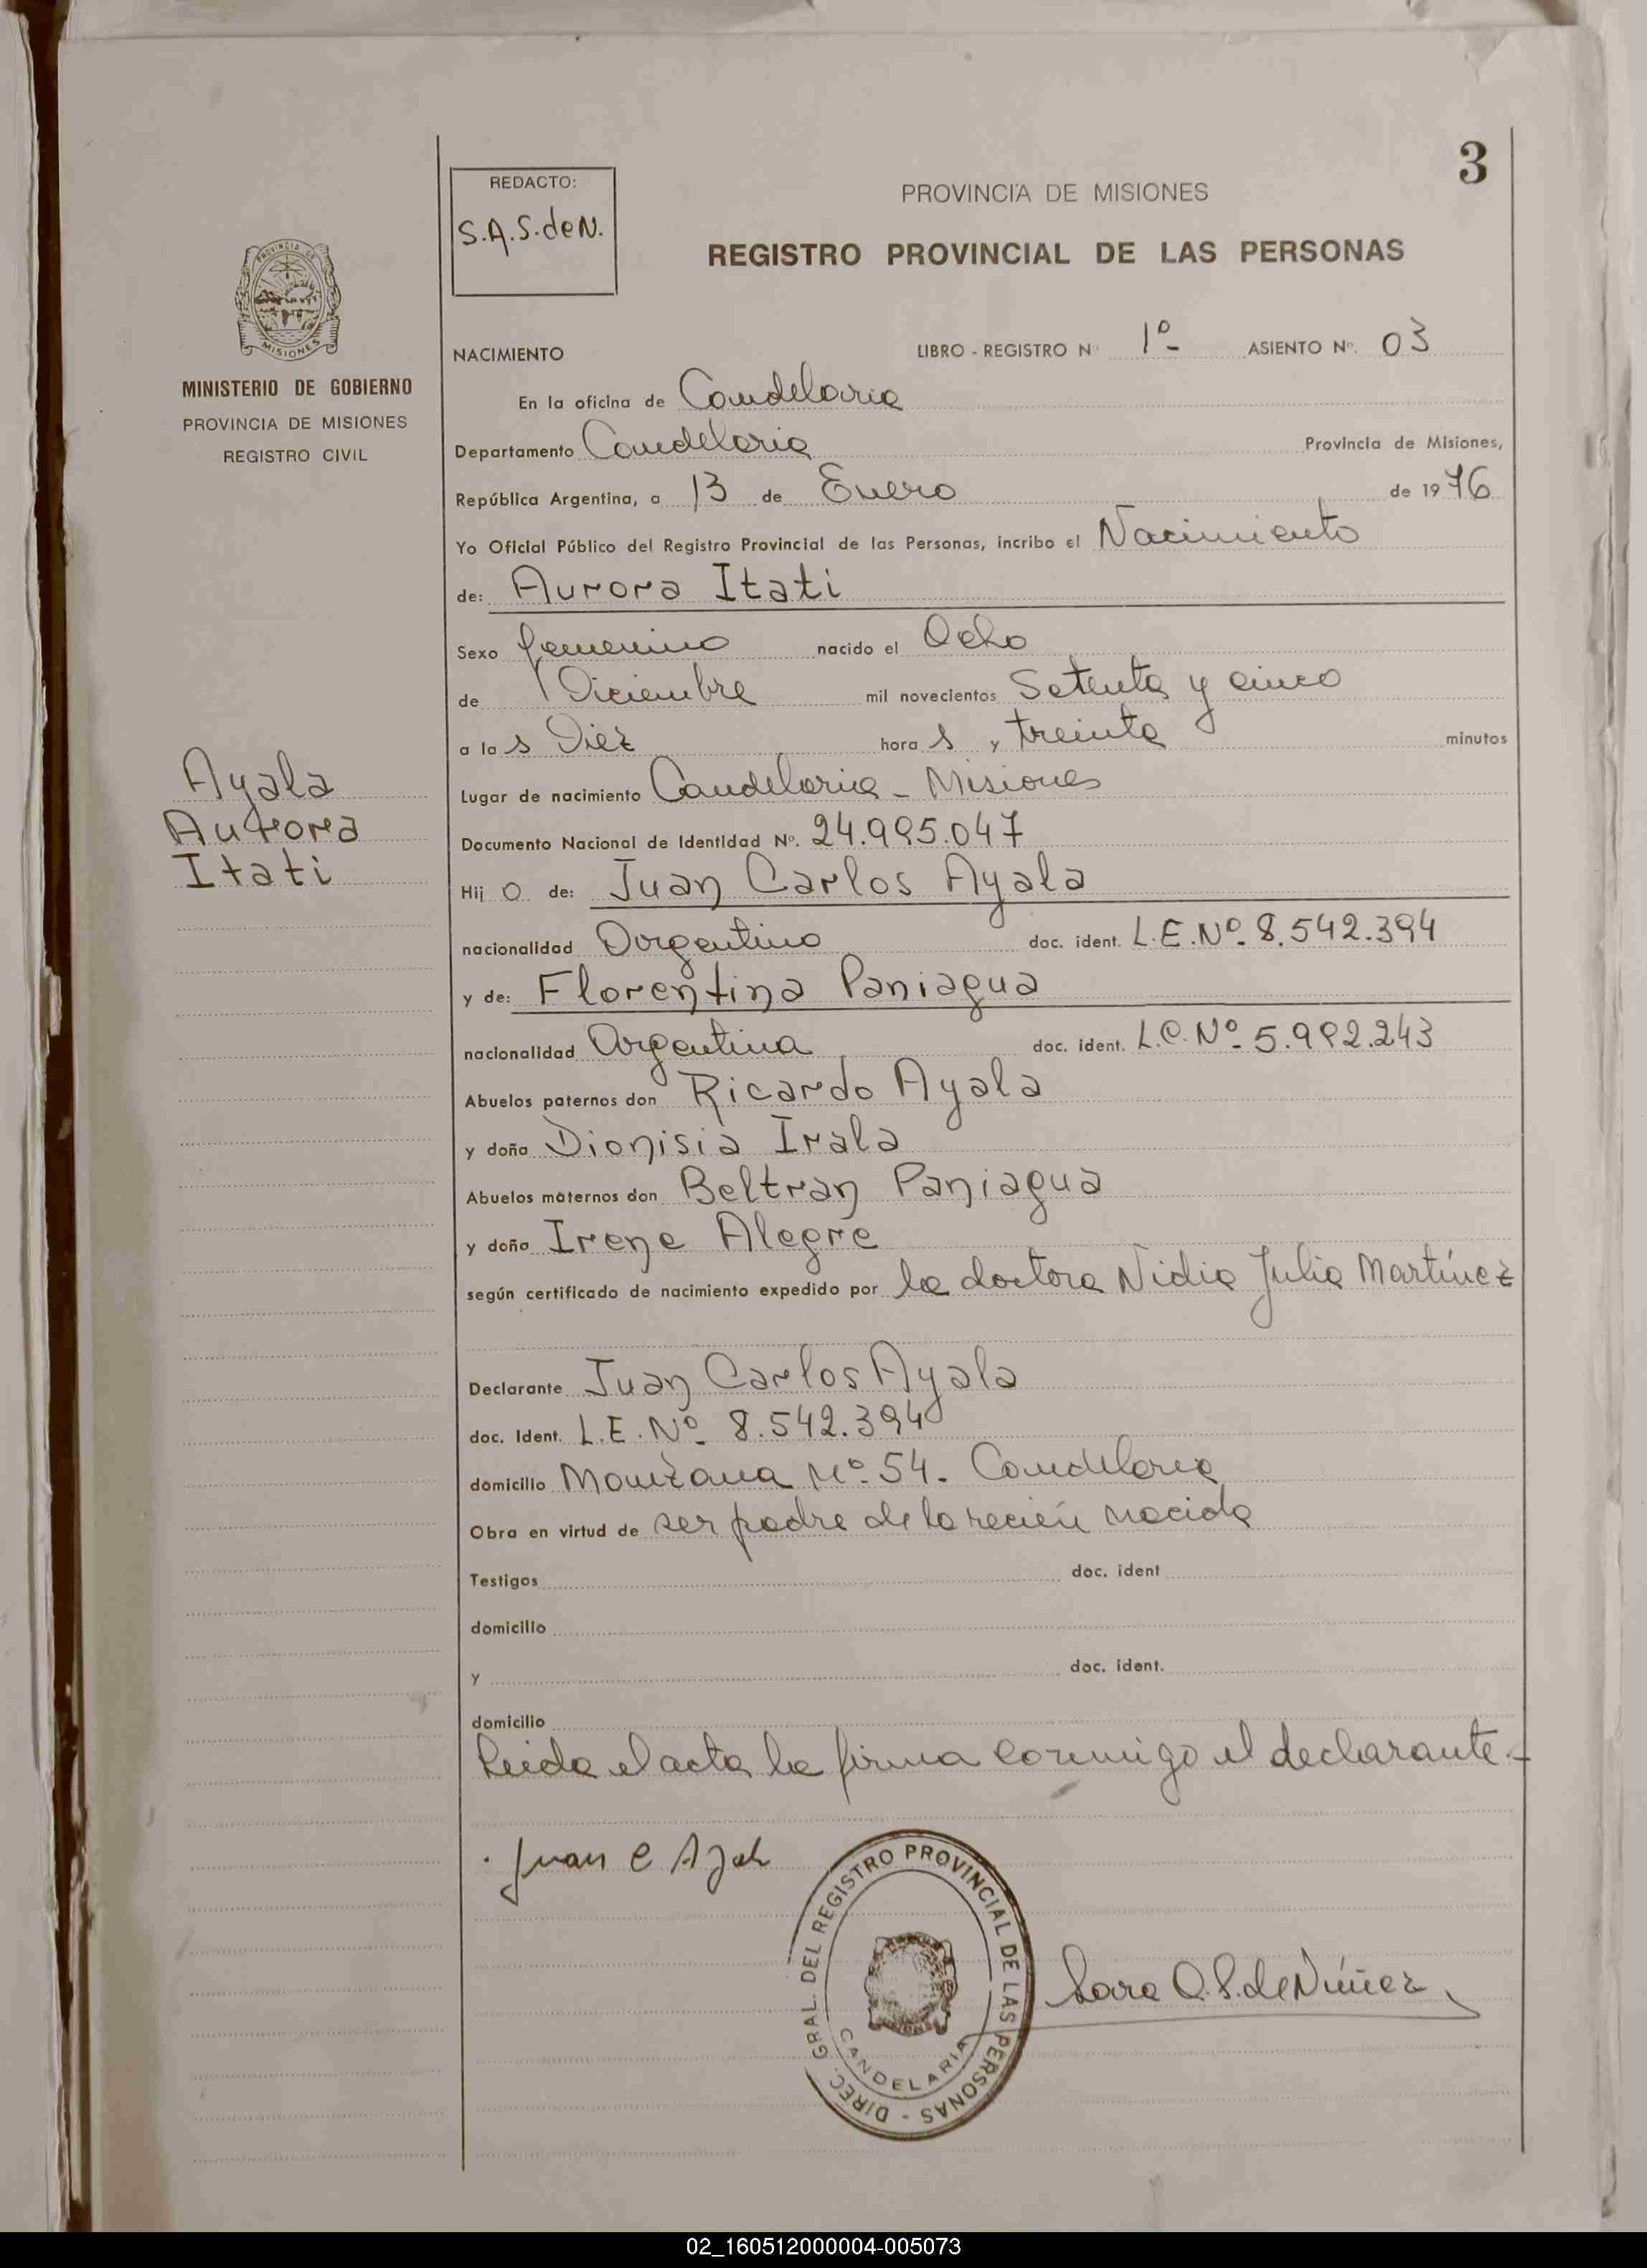 3
REDACTO:
S.A.S. de N.
PROVINCIA DE MISIONES
REGISTRO PROVINCIAL DE LAS PERSONAS
MISIONES
MINISTERIO DE GOBIERNO
PROVINCIA DE MISIONES
REGISTRO CIVIL
NACIMIENTO LIBRO - REGISTRO Nº 1º ASIENTO Nº. 03
En la oficina de Candelaria
Departamento Candelaria Provincia de Misiones,
República Argentina, a 13 de Enero de 1976
Yo Oficial Público del Registro Provincial de las Personas, incribo el Nacimiento
de: Aurora Itati
Sexo femenino nacido el Ocho
de Diciembre mil novecientos Setenta y cinco
a las Diez horas y treinta minutos
Ayala
Aurora
Itati
Lugar de nacimiento Candelaria - Misiones
Documento Nacional de Identidad Nº. 24.995.047
Hijo de: Juan Carlos Ayala
nacionalidad Argentino doc. ident. L.E. Nº 8.542.394
y de: Florentina Paniagua
nacionalidad Argentina doc. ident. L.C. Nº 5.992.243
Abuelos paternos don Ricardo Ayala
y doña Dionisia Irala
Abuelos maternos don Beltran Paniagua
y doña Irene Alegre
según certificado de nacimiento expedido por la doctora Nidia Julia Martínez
Declarante Juan Carlos Ayala
doc. Ident. L.E. Nº 8.542.394
domicilio Manzana Nº 54. Candelaria
Obra en virtud de ser padre de la recién nacida
Testigos doc. ident
domicilio
y doc. ident.
domicilio
Leida el acta la firma conmigo el declarante.-
Juan C Ayala
DIREC. GRAL. DEL REGISTRO PROVINCIAL DE LAS PERSONAS -
CANDELARIA
Sara A. S. de Núñez
02_160512000004-005073